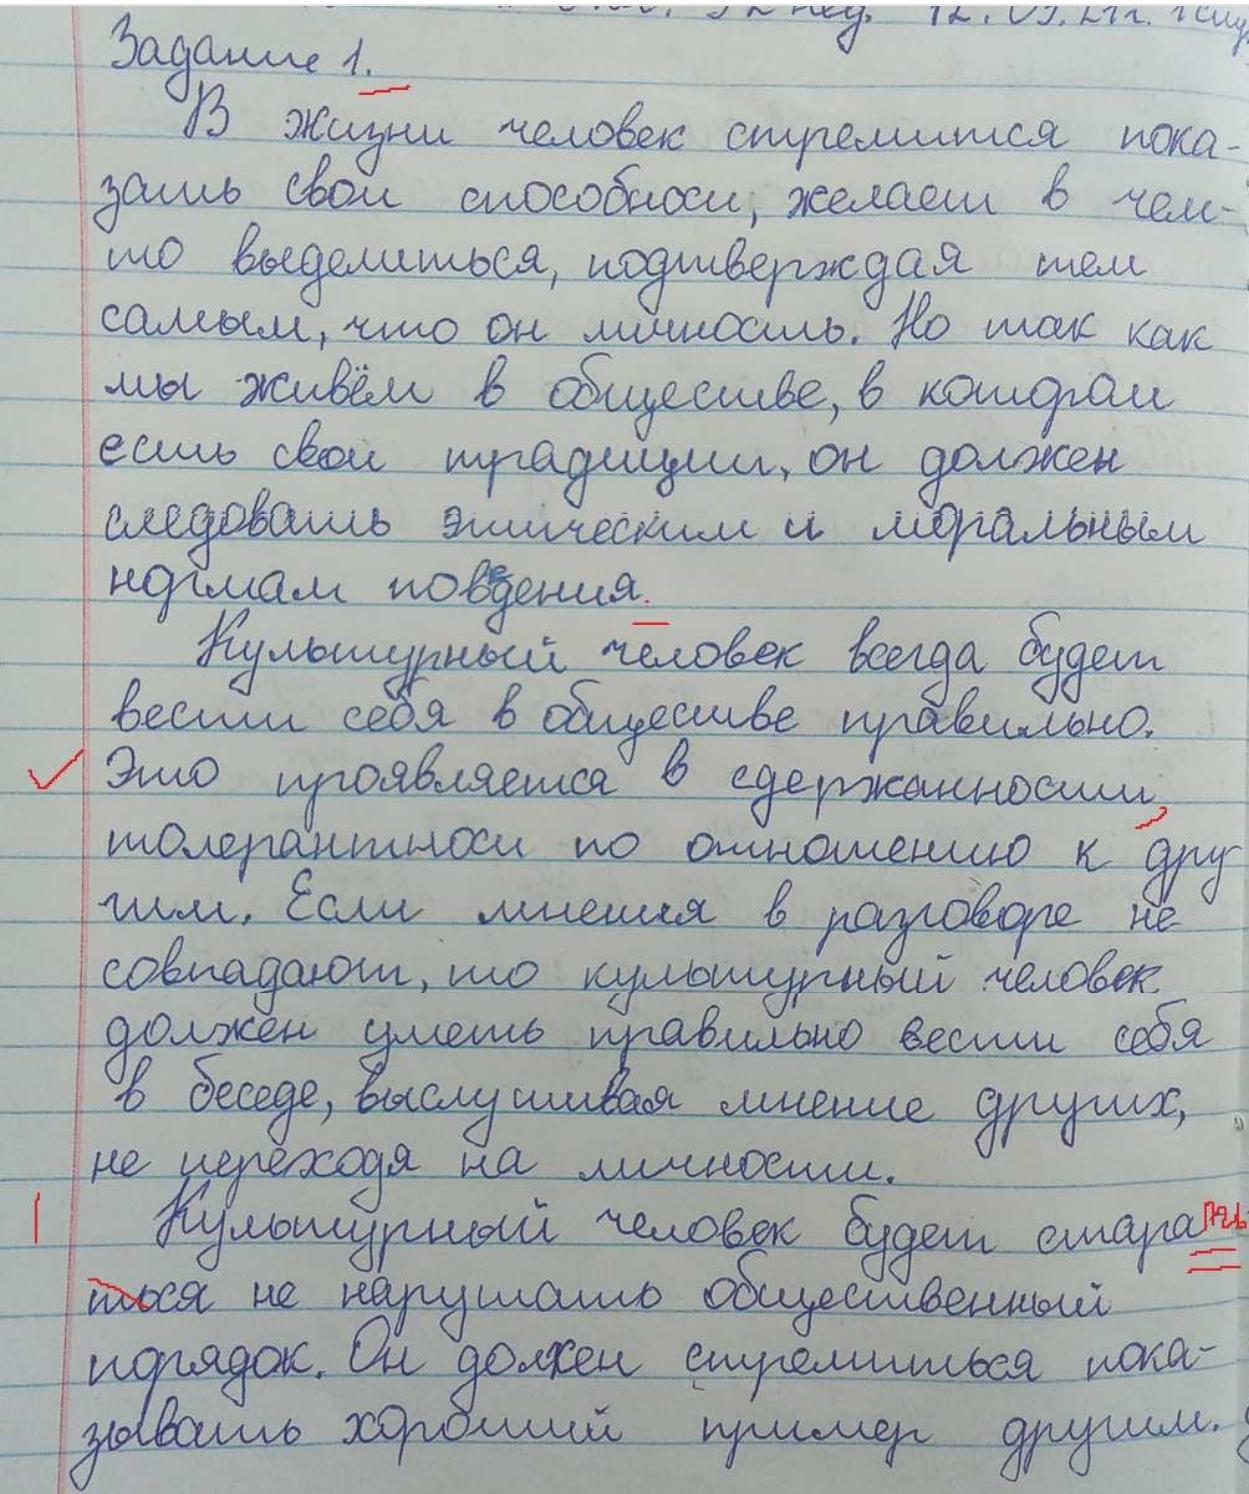 12.05.21г.
Задание 1.
В жизни человек стремится пока-
зать свои способноси, желает в чем-
то выделиться, подтверждая тем
самым, что он личность. Но так как
мы живём в обществе, в котором
есть свои традиции, он должен
следовать этическим и моральным
нормам поведения.
Культурный человек всегда будет
вести себя в обществе правильно.
Это проявляется в сдержанности,
толерантноси по отношению к дру
гим. Если мнения в разговоре не
совпадают, то культурный человек
должен уметь правильно вести себя
в беседе, выслушивая мнение других,
не переходя на личности.
Культурный человек будет стара ть
ться не нарушать общественный
порядок. Он должен стремиться пока-
зывать хороший пример другим.